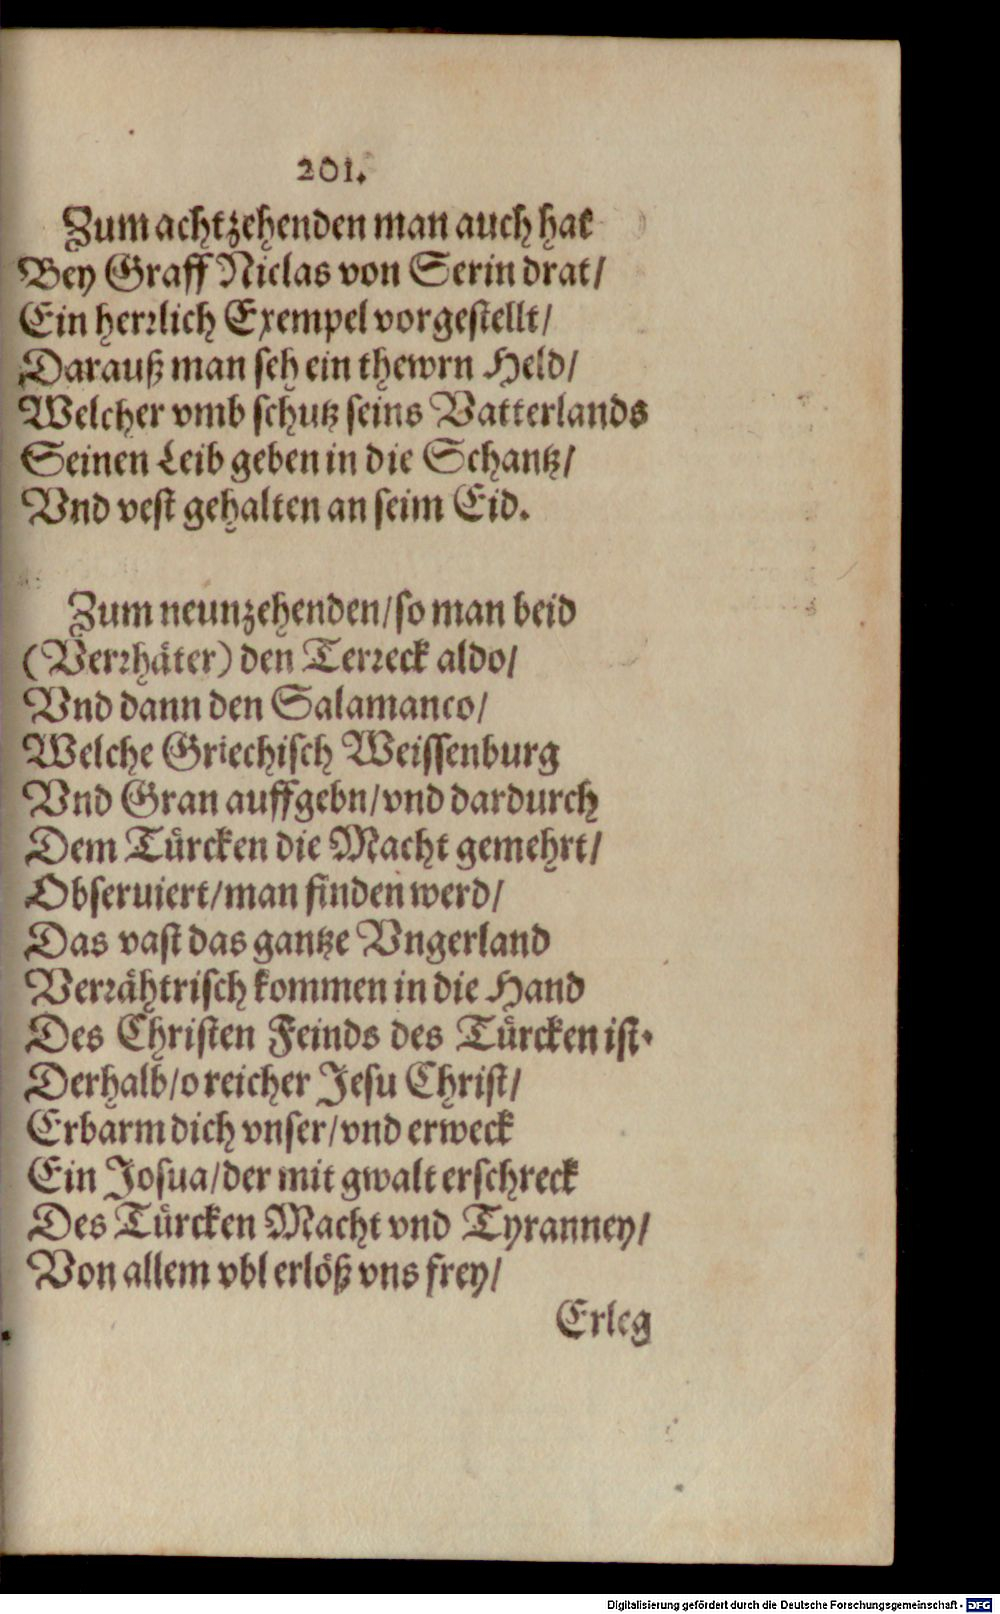 201.
Zum achtzehenden man auch hat
Bey Graff Niclas von Serin drat/
Ein herrlich Exempel vorgestellt/
Darauß man seh ein thewrn Held/
Welcher vmb schutz seins Vatterlands
Seinen Leib geben in die Schantz/
Vnd vest gehalten an seim Eid.
Zum neunzehenden/so man beid
(Verrhäter) den Terreck aldo/
Vnd dann den Salamanco/
Welche Griechisch Weissenburg
Vnd Gran auffgebn/vnd dardurch
Dem Türcken die Macht gemehrt/
Obseruiert/man finden werd/
Das vast das gantze Vngerland
Verrähtrisch kommen in die Hand
Des Christen Feinds des Türcken ist.
Derhalb/o reicher Jesu Christ/
Erbarm dich vnser/vnd erweck
Ein Josua/der mit gwalt erschreck
Des Türcken Macht vnd Tyranney/
Von allem vbl erlöß vns frey/
Erleg
Digitalisierung gefördert durch die Deutsche Forschungsgemeinschaft - DFG